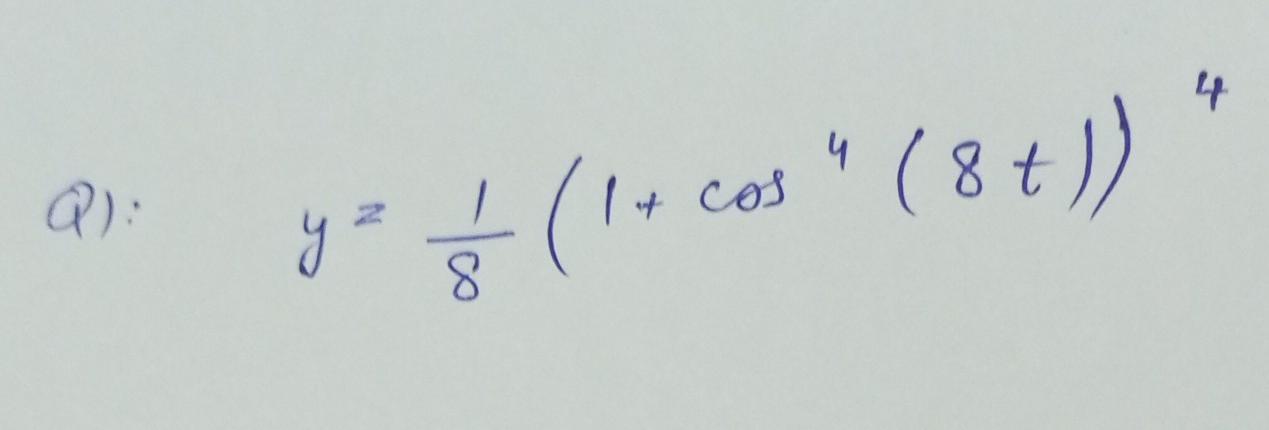 Q): y = 1/8 (1 + cos⁴ (8t))⁴